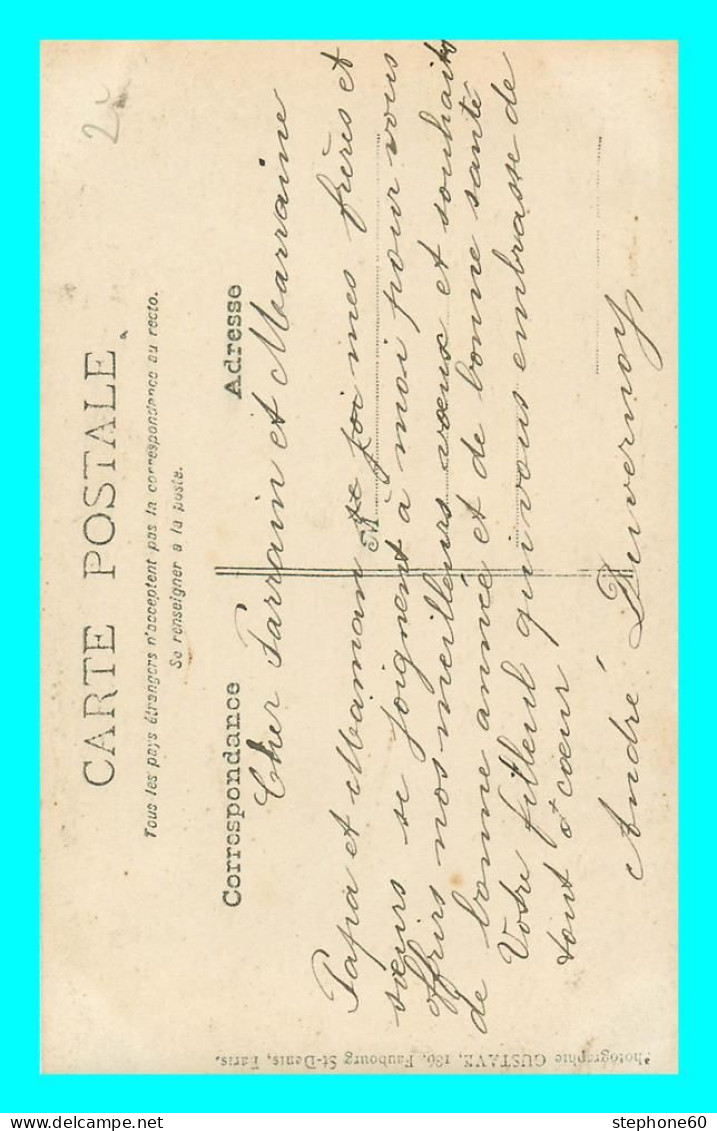 CARTE POSTALE
Tous les pays étrangers n'acceptent pas la correspondance au recto.
Se renseigner a la poste.
Correspondance
Adresse
M
Cher Parrain et Marraine
Papa et Maman mes frères et
sœurs se joignent à moi pour vous
offrirs nos meilleurs vœux et souhaits
de bonne année et de bonne santé
Votre filleul qui vous embrasse de
tout cœur
André Duvernoy
Photographie GUSTAVE, 186, Faubourg St-Denis, Paris.
stephone60